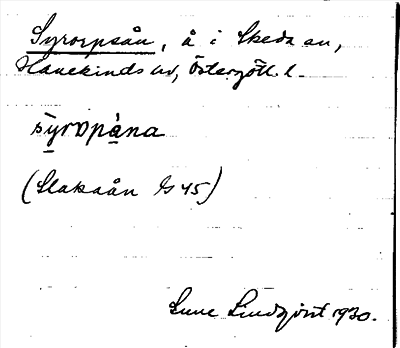 Syrorpsån, å i Skeda sn,
Hanekinds hd, Östergötl. l.
sy̱ropȧ̱na
(Slakaån GS 45)
Sune Lindqvist 1930.